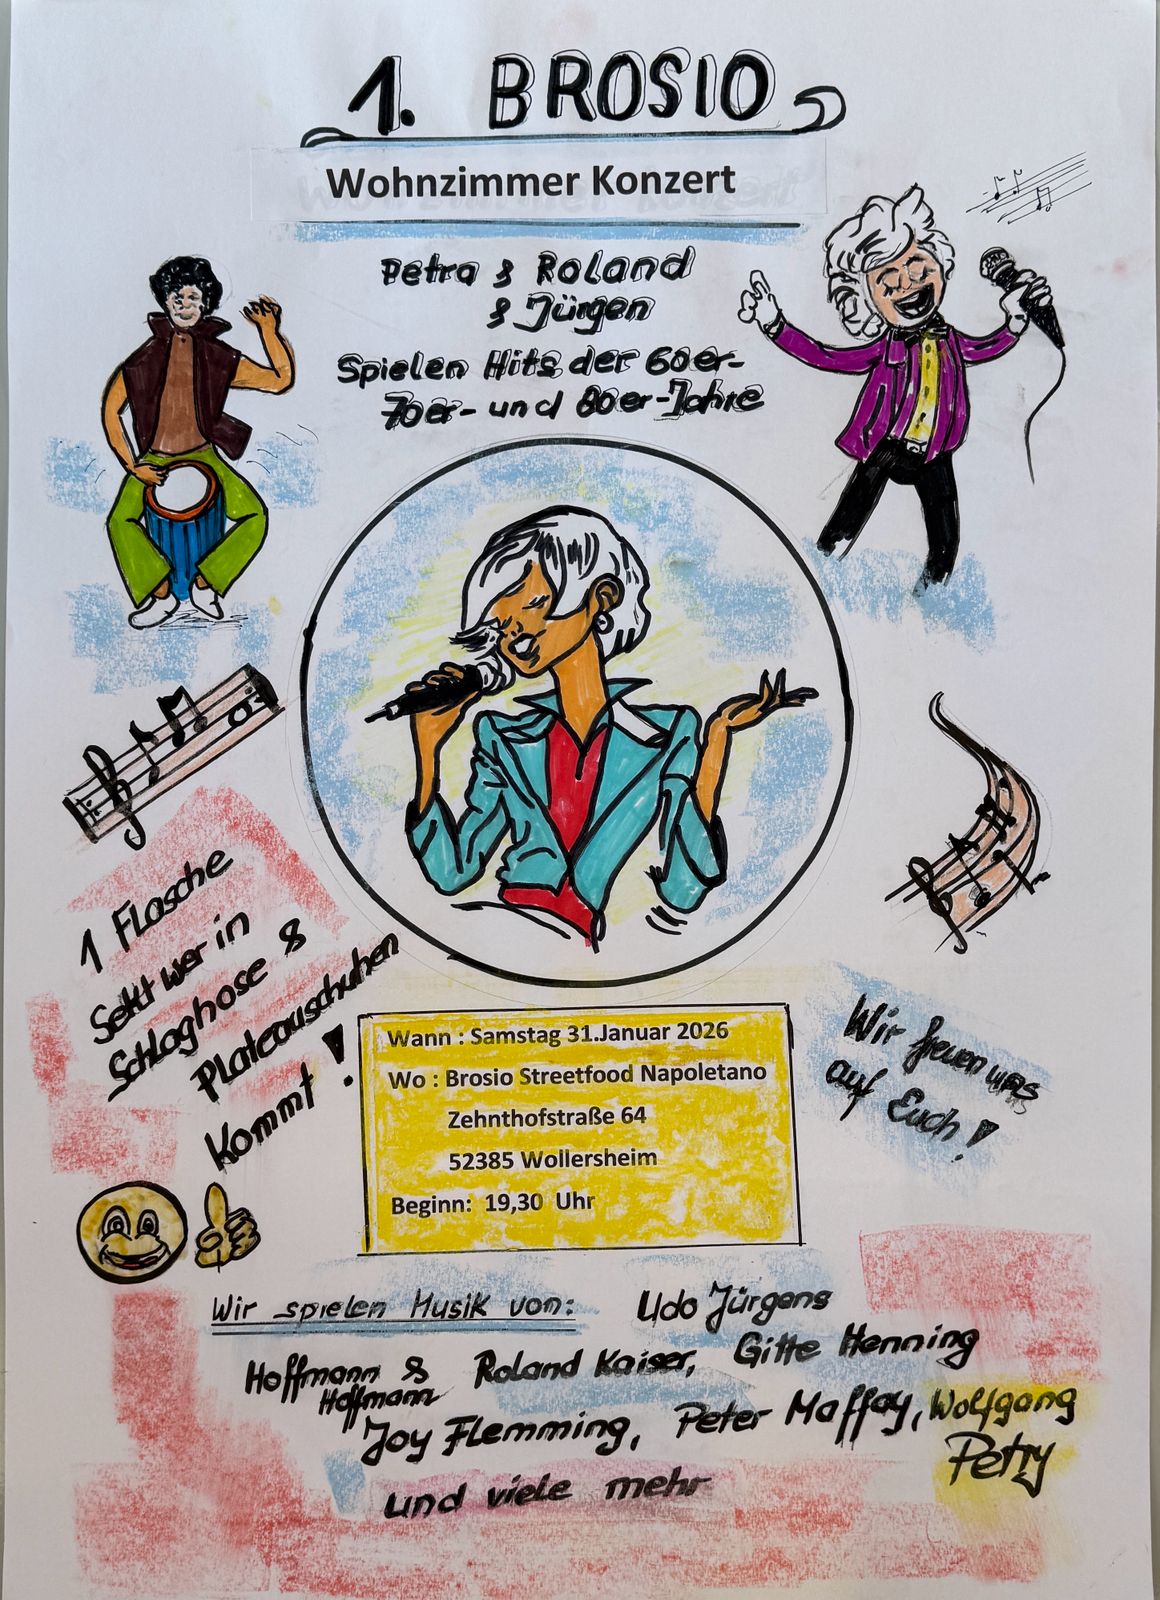 1. BROSIO
Wohnzimmer Konzert
Petra & Roland
& Jürgen
Spielen Hits der 60er-
70er- und 80er-Jahre
1 Flasche
Sekt wer in
Schlaghose &
Plateauschuhen
kommt !
Wann : Samstag 31.Januar 2026
Wo : Brosio Streetfood Napoletano
Zehnthofstraße 64
52385 Wollersheim
Beginn: 19,30 Uhr
Wir freuen uns
auf Euch !
Wir spielen Musik von: Udo Jürgens
Hoffmann & Roland Kaiser, Gitte Henning
Hoffmann
Joy Flemming, Peter Maffay, Wolfgang
Petry
und viele mehr